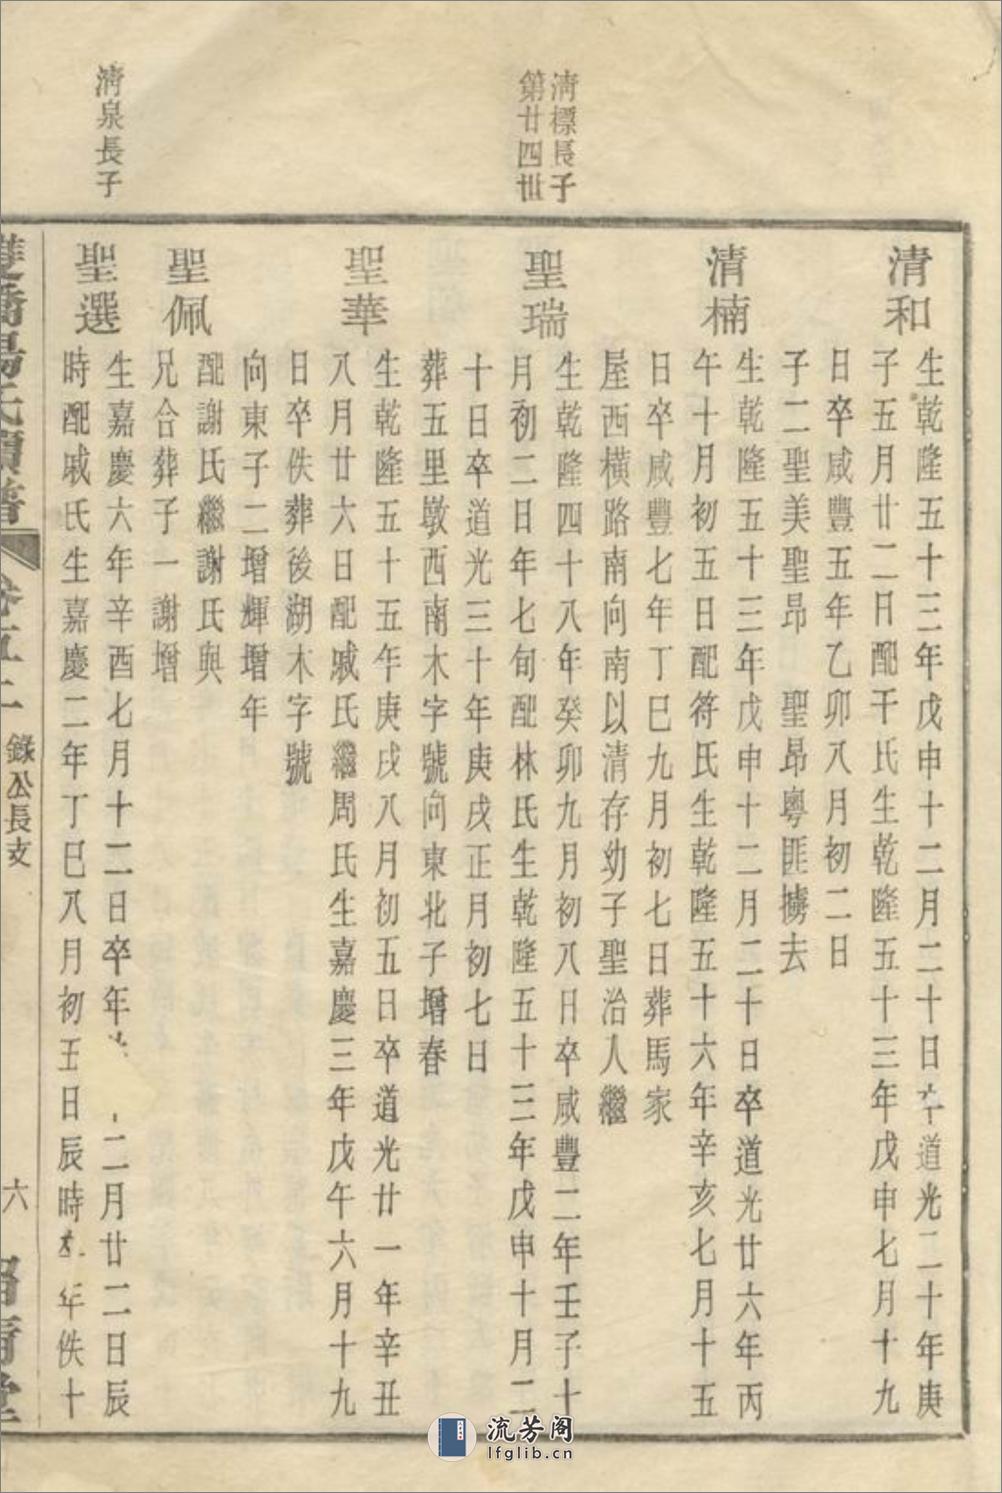 清標長子
第廿四世
清泉長子
清和
生乾隆五十三年戊申十二月二十日卒道光二十年庚
子五月廿二日配干氏生乾隆五十三年戊申七月十九
日卒咸豐五年乙卯八月初二日
子二聖美聖昂 聖昂粵匪擄去
清楠
生乾隆五十三年戊申十二月二十日卒道光廿六年丙
午十月初五日配符氏生乾隆五十六年辛亥七月十五
日卒咸豐七年丁巳九月初七日葬馬家
屋西橫路南向南以清存幼子聖治入繼
聖瑞
生乾隆四十八年癸卯九月初八日卒咸豐二年壬子十
月初二日年七旬配林氏生乾隆五十三年戊申十月二
十日卒道光三十年庚戌正月初七日
葬五里墩西南木字號向東北子增春
聖華
生乾隆五十五年庚戌八月初五日卒道光廿一年辛丑
八月廿六日配戚氏繼周氏生嘉慶三年戊午六月十九
日卒佚葬後湖木字號
向東子二增輝增年
聖佩
配謝氏繼謝氏與
兄合葬子一謝增
聖選
生嘉慶六年辛酉七月十二日卒年 二月廿二日辰
時配戚氏生嘉慶二年丁巳八月初五日辰時 年佚十
雙橋楊氏續譜
卷五上
錄公長支
六
堂
流芳阁
lfglib.cn